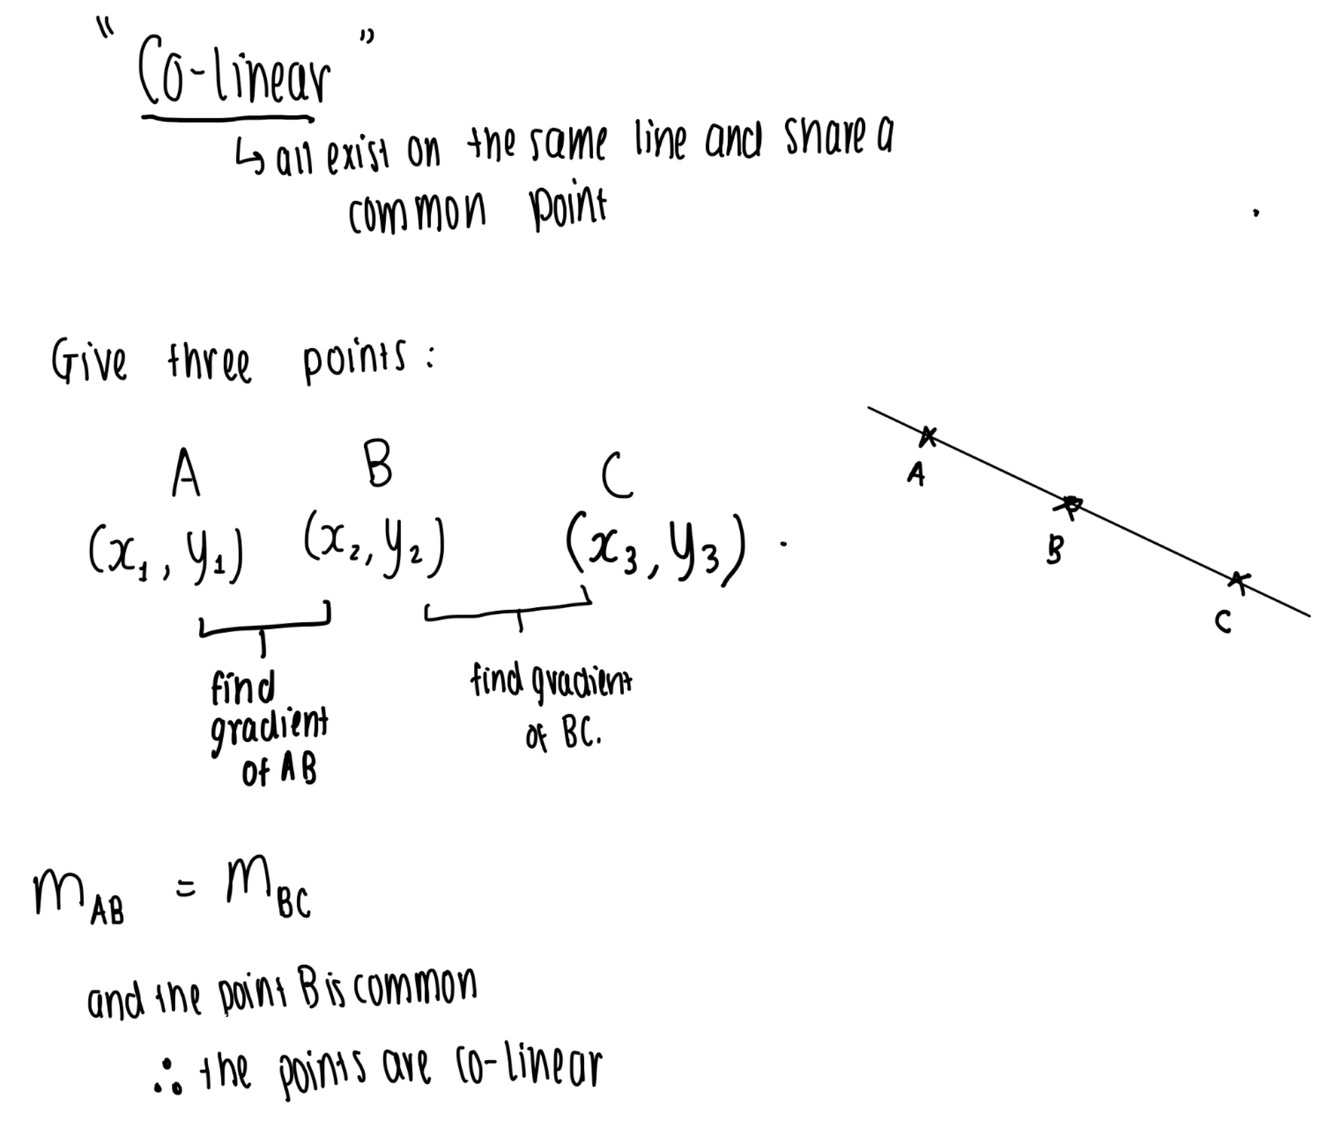 "Co-linear"
↳ all exist on the same line and share a
common point
Give three points:
A B C
(x₁, y₁) (x₂, y₂) (x₃, y₃).
find gradient of AB
find gradient of BC.
A
B
C
m_AB = m_BC
and the point B is common
∴ the points are co-linear